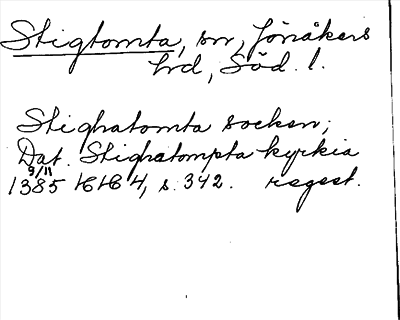 Stigtomta, sn, Jönåkers
hd, Söd. l.
Stighatomta socken;
Dat. Stighatompta kyrkia
9/11
1385 HH 4, s. 342. regest.